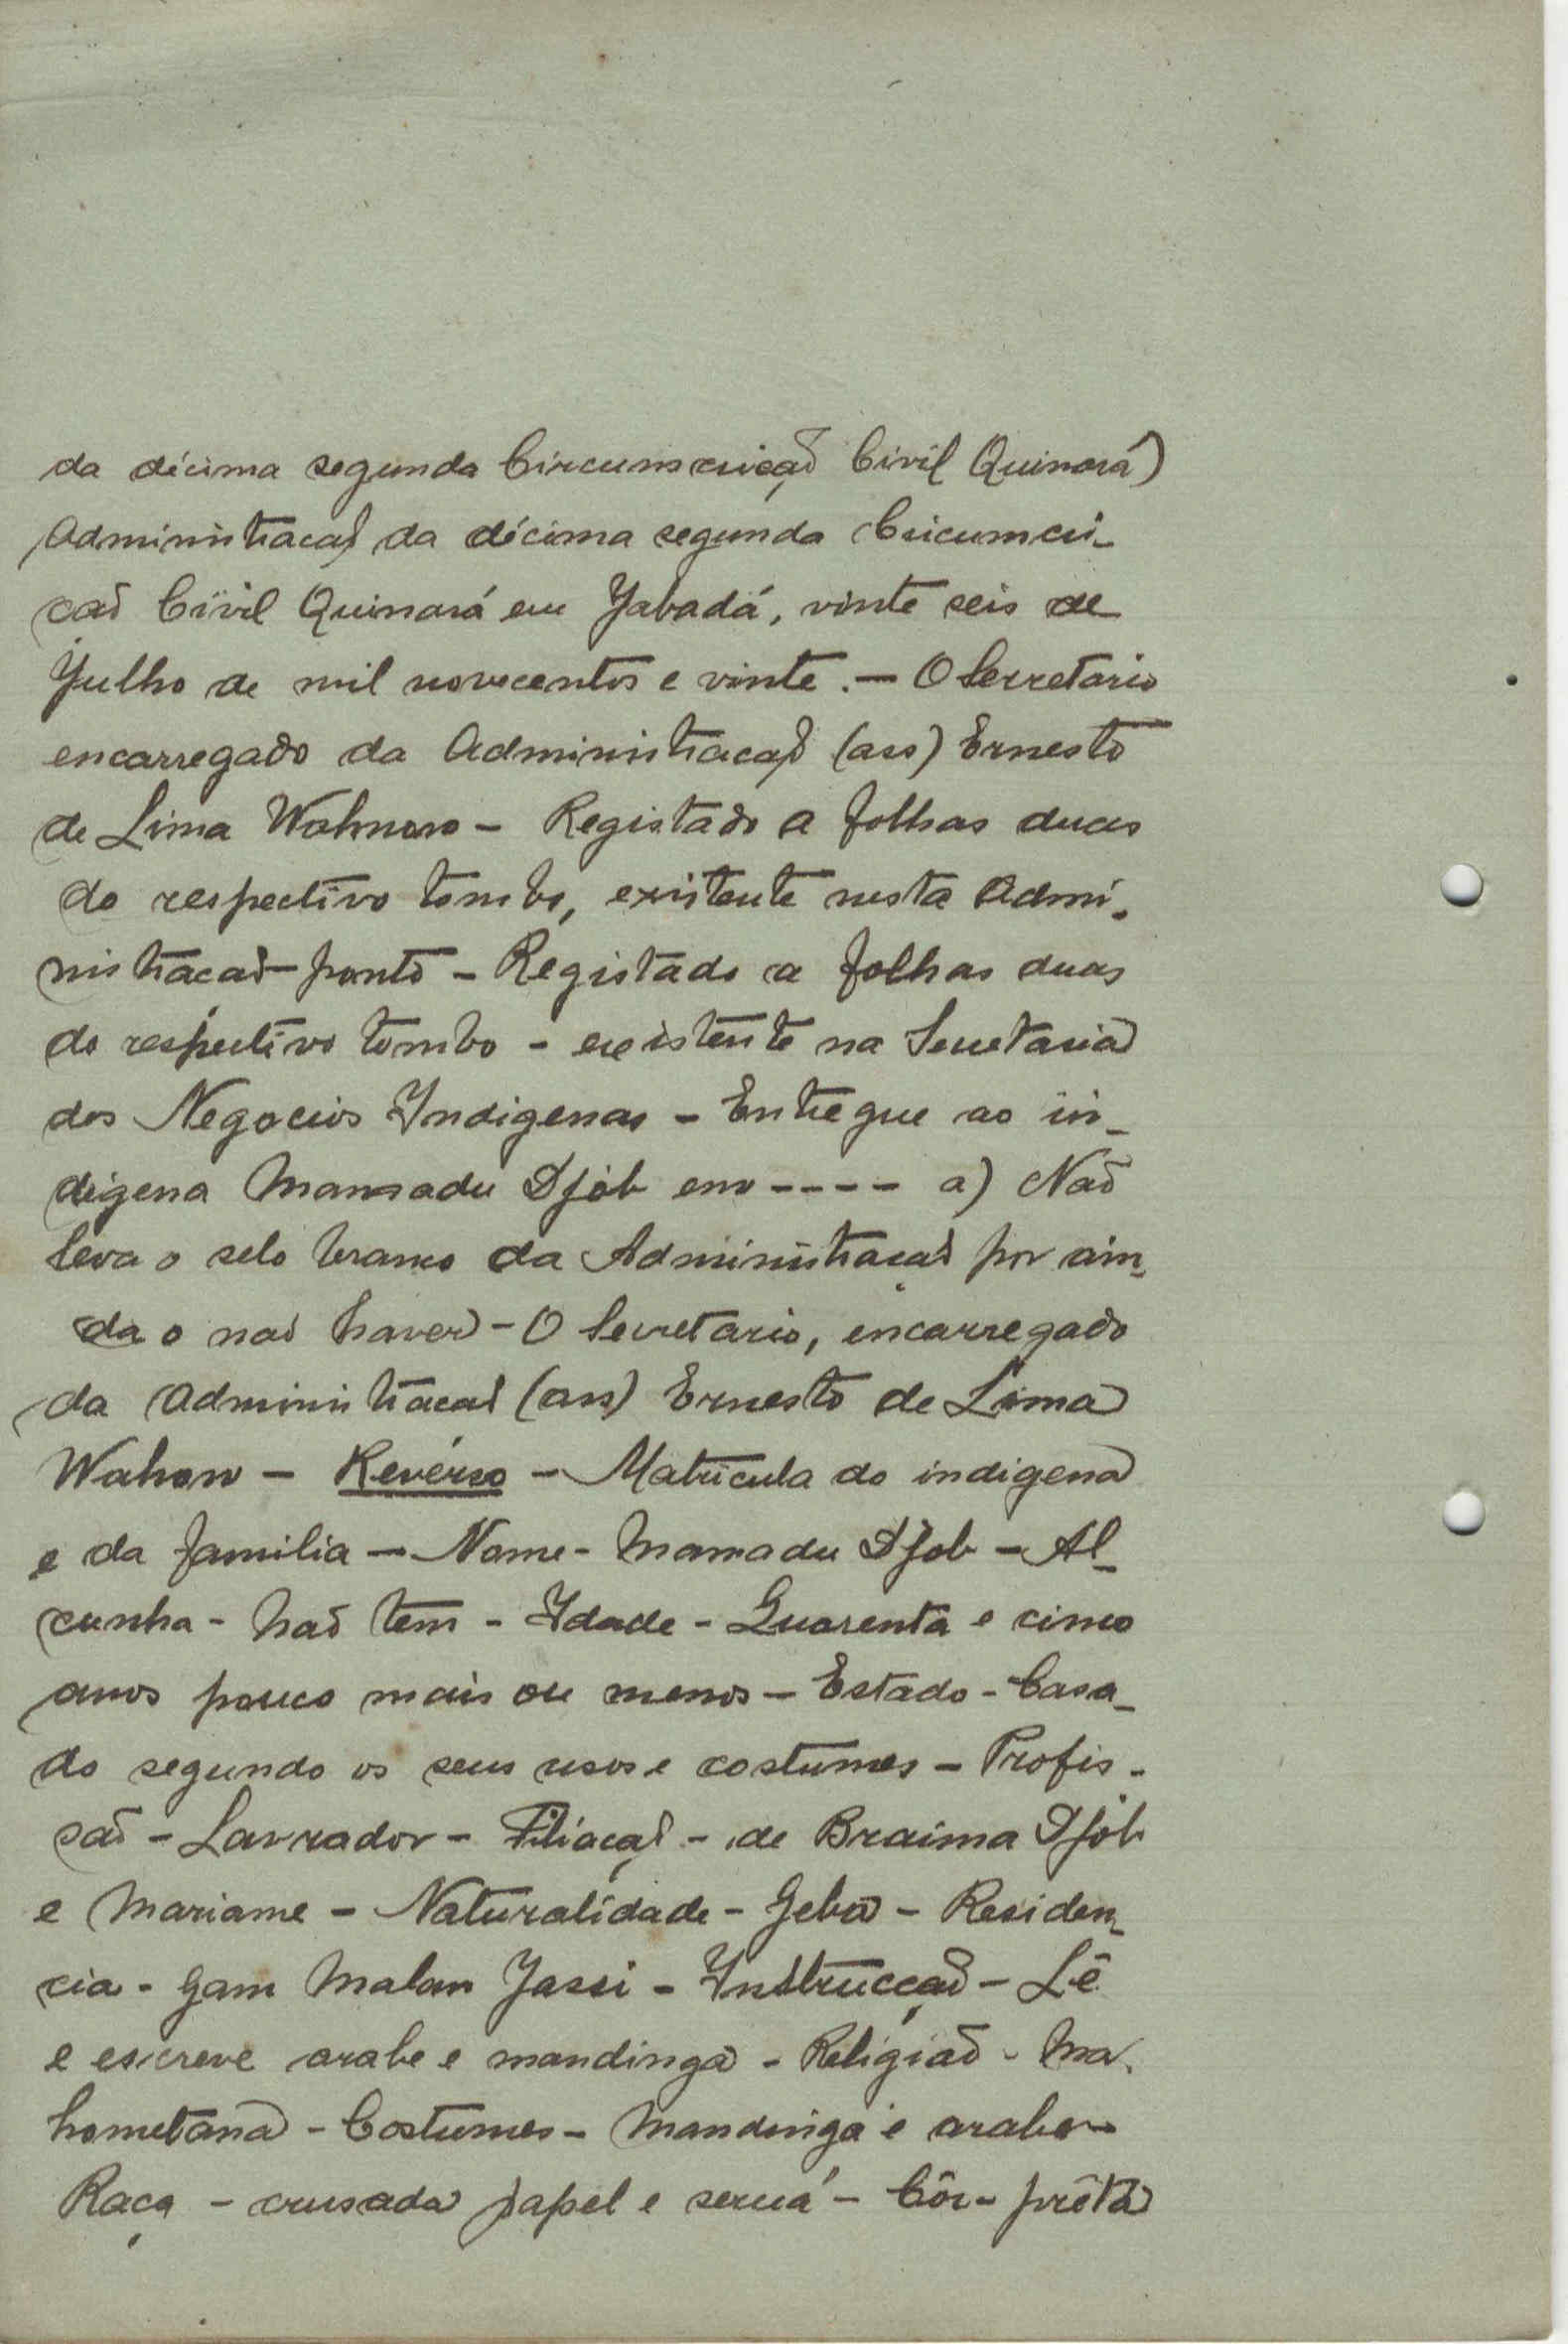 da décima segunda Circumscrição Civil Quinará)
Administração da décima segunda Circumcri-
caõ Civil Quinará em Jabadá, vinte seis de
Julho de mil novecentos e vinte. — O Secretario
encarregado da Administração (ass) Ernesto
de Lima Wahnon - Registado a folhas duas
do respectivo tombo, existente nesta Admi-
nistracaõ - ponto - Registado a folhas duas
do respectivo tombo - existente na Secretaria
dos Negocios Indigenas - Entregue ao in-
digena Mamadu Djób em ---- a) Naõ
leva o selo branco da Administração por ain-
da o naõ haver - O Secretario, encarregado
da Administracaõ (ass) Ernesto de Lima
Wahon - Revérso - Matricula do indigena
e da familia — Nome - Mamadu Djob - Al-
cunha - Naõ tem - Idade - Quarenta e cinco
anos pouco mais ou menos - Estado - Casa-
do segundo os seus usos e costumes - Profis-
saõ - Lavrador - Filiação - de Braima Djób
e Mariame - Naturalidade - Geba - Residen-
cia - Gam Malan Jassi - Instrucção - Lê
e escreve arabe e mandinga - Religiaõ - Ma-
hometana - Costumes - Mandinga e arabe -
Raça - crusada papel e seruá - Côr - prêta